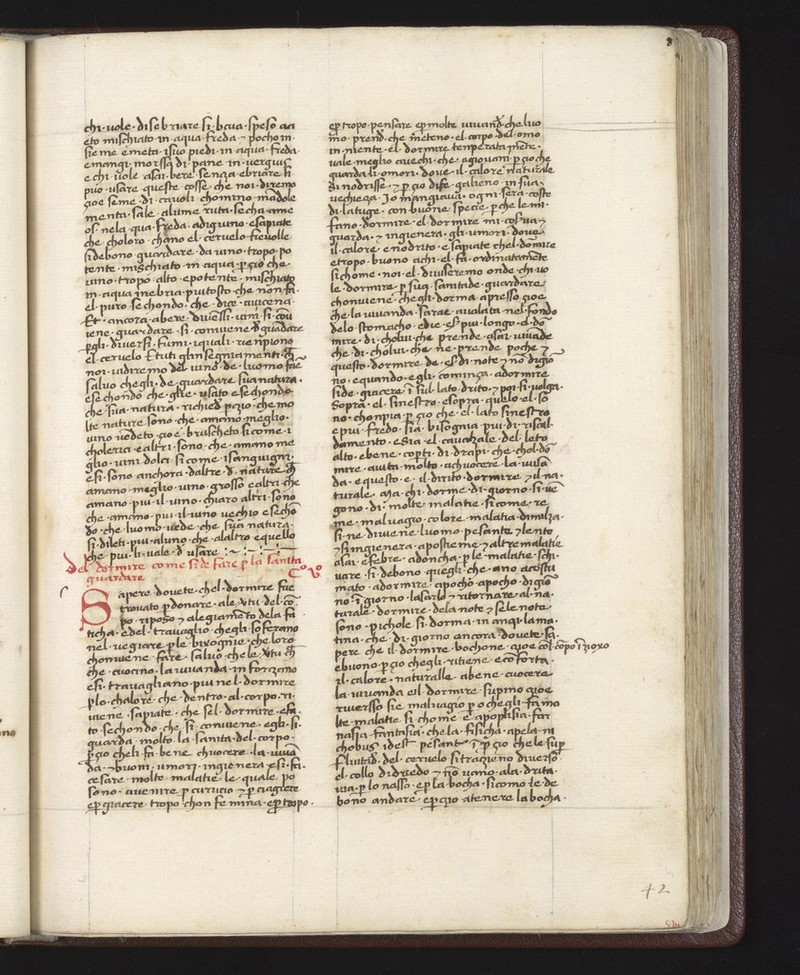 chi · vole · disebriare si · beva · speso aci
eto mischiato in aqua · freda · pocho in
sieme e meta · isuo piedi · in aqua · freda ·
e mangi · morsseli di pane · in · vergus
e chi vole asai · bere · senza · ebriare li
può · usare · queste cosse · che · noi · diremo
çoe · seme · di · cavoli · chomino · mādole
menta · sale · alume · ruta · secha · ame
os nela · qua · freda · adiguino · esapiate
che · choloro · chāno el · cervelo · fievolle
si debono · guardare · da vino · tropo · po
tente · mischiato in · aqua · p̄ çio che ·
vino · tropo · alto · epotente · mischiato
in · aqua inebria · piutosto · che · non · fa ·
el · puro · sechondo · che · dice · avicena ·
Et · ancora · abere · diverssi · vini · si · cōu
iene · guardare · si · conviene · d guadare
p̄ gli · diversi · fumi · iquali · rienpiono
el cervelo Et tuti gl insegniamenti · ch̄
noi · vidiremo del vino · de · luomo · fae
salvo chegli · de · guardare · sua natura ·
e sechondo · che · glie · usato e sechondo ·
che · sua · natura · richied · p̄ çio · che mo
lte nature sono · che · amano meglio ·
vino vōdeto · çoe · bruscheto si come · i
cholerici · e altri · sono · che · amano me
glio · vini dolci si come · isanguigni ·
esi · sono · anchora · daltre · d · nature ch̄
amano · meglio · vino · grosso e altri · che
amano · piu il vino · chiaro altri · sono
che · amano · piu · il · vino · vechio e sechō
do · che luomo vede · che · sua natura ·
si dileti · piu · aluno · che · alaltro e quello
che · piu · li · vale · d usare
Del dormire come si de fare p̄ la sanita
guardare
Sapere dovete · chel · dormire · fue
trovato p̄ donare · ale · vtu · del · cō
po · riposo · alegiamēto dela fa
ticha · e del · travaglio · chegli · soferano
nel · vegiare · p̄ le bixognie · che loro
chonviene · fare · salvo · chele vtu · d
che · cuocino · la vivanda · in forzano
esi · travagliano · piu · nel · dormire
p̄ lo · chalore · che · dentro · al · corpo · ri
viene · sapiate · che · sel · dormire · efa
to sechondo · che si · conviene · egli · si ·
guarda · molto · la · sanita · del · corpo ·
p̄ çio cheli · fa · bene · chuocere · la · vivā
da · buoni · umori · ingienera · esi · fa
cesare · molte · malatie le · quale · po
sono · avenire · p̄ caruçio · p̄ ciagiere
ep̄ giacere · tropo · chon · femina · ep̄ tropo ·
ep̄ tropo · pensare · ep̄ molte · vivand̄ · che luo
mo · prend̄ · che · meteno · el · corpo · del · omo
in · mente · el · dormire · temperatamēte ·
vale · meglio · aivechi · che · agiovani · p̄ çio che
guarda · li · omori · dove · il · calore · naturale
si nodrisse · p̄ çio · dise · galieno · in sua ·
vechieza · Io mangiava · ogni · sera · coste
di latuge · con · buone · specie · p̄ che le mi
fano · dormire · el dormire · mi
guarda · ingienera · gli · umori · dove
il · calore · e nodrito · e sapiate · chel · domire
e tropo · buono · achi · el · fa · ordinatamēte
si chome · noi · el · diviseremo · onde · chi · vo
le · dormire · p̄ sua · sanitade · guardare ·
chonviene · chegli · dorma · apresso · çioe ·
che · la vivanda · sarae avalata · nel · fondo
delo stomacho · e piu · longo · el · do
mire · di · cholui · che · prende · asai · vivāde
che · di · cholui · che · ne · prende · poche
questo · dormire · de · esē di · note nō digio
no · e quando · egli · cominça · adormire
si de · giacere · ī sul lato · drito · poi · si · volga ·
Sopra · el · sinestro · e sopra · quelo · el · so
no · chonpia · p̄ çio che · el · lato · sinestro
e piu · fredo · si a · bisognia · piu · di · riscal
damento · e sia · el · cavazale · del · leto
alto · ebene · cop̄ti · di · drapi · che · chol · do
mire · aiuta · molto · achuocere · la · viva
da · e questo · e · il · dirito · dormire · il · na
turale · ma · chi · dorme · di · giorno · si · ve
gono · di · molte · malatie · si come · re
me · malvagio · colore · malatia · dimilza ·
si · ne · diviene · luomo · pesante lento
si ingienera · apostieme altre malatie
asai · e febre · adoncha · p̄ le · malatie · schi
vare · si · debono · quegli · che · ano · acostu
mato · adormire · apocho · apocho · di gio
no · ī giorno · lasarlo ritornare · al · na
turale · dormire · dela note sele note ·
sono · pichole si dorma · in anqi · lama
tina · che · di · giorno · ancora · dovete · sa
pere · che · il dormire · bochone ·
ebuono · p̄ çio chegli · ritiene · ecōforta ·
il · calore · naturalle · abene · cuocere
la · vivanda eil dormire · supino çioe
riverso si e malvagio · p̄ o chegli · fāno
lte · malatie · si · chome · e · apoplesia · far
nasia · fantasia · che la · fisicha · apela · in
chobus · idest · pesant ī p̄ çio · che le sup̄
fluitid · del · cervelo si traçieno · diverso ·
el collo · di driedo nō · vano · ala · drita ·
via · p̄ lo nasso · e p̄ la bocha · si como · le · de
bono · andare · ep̄ çio · atenere la bocha ·
42